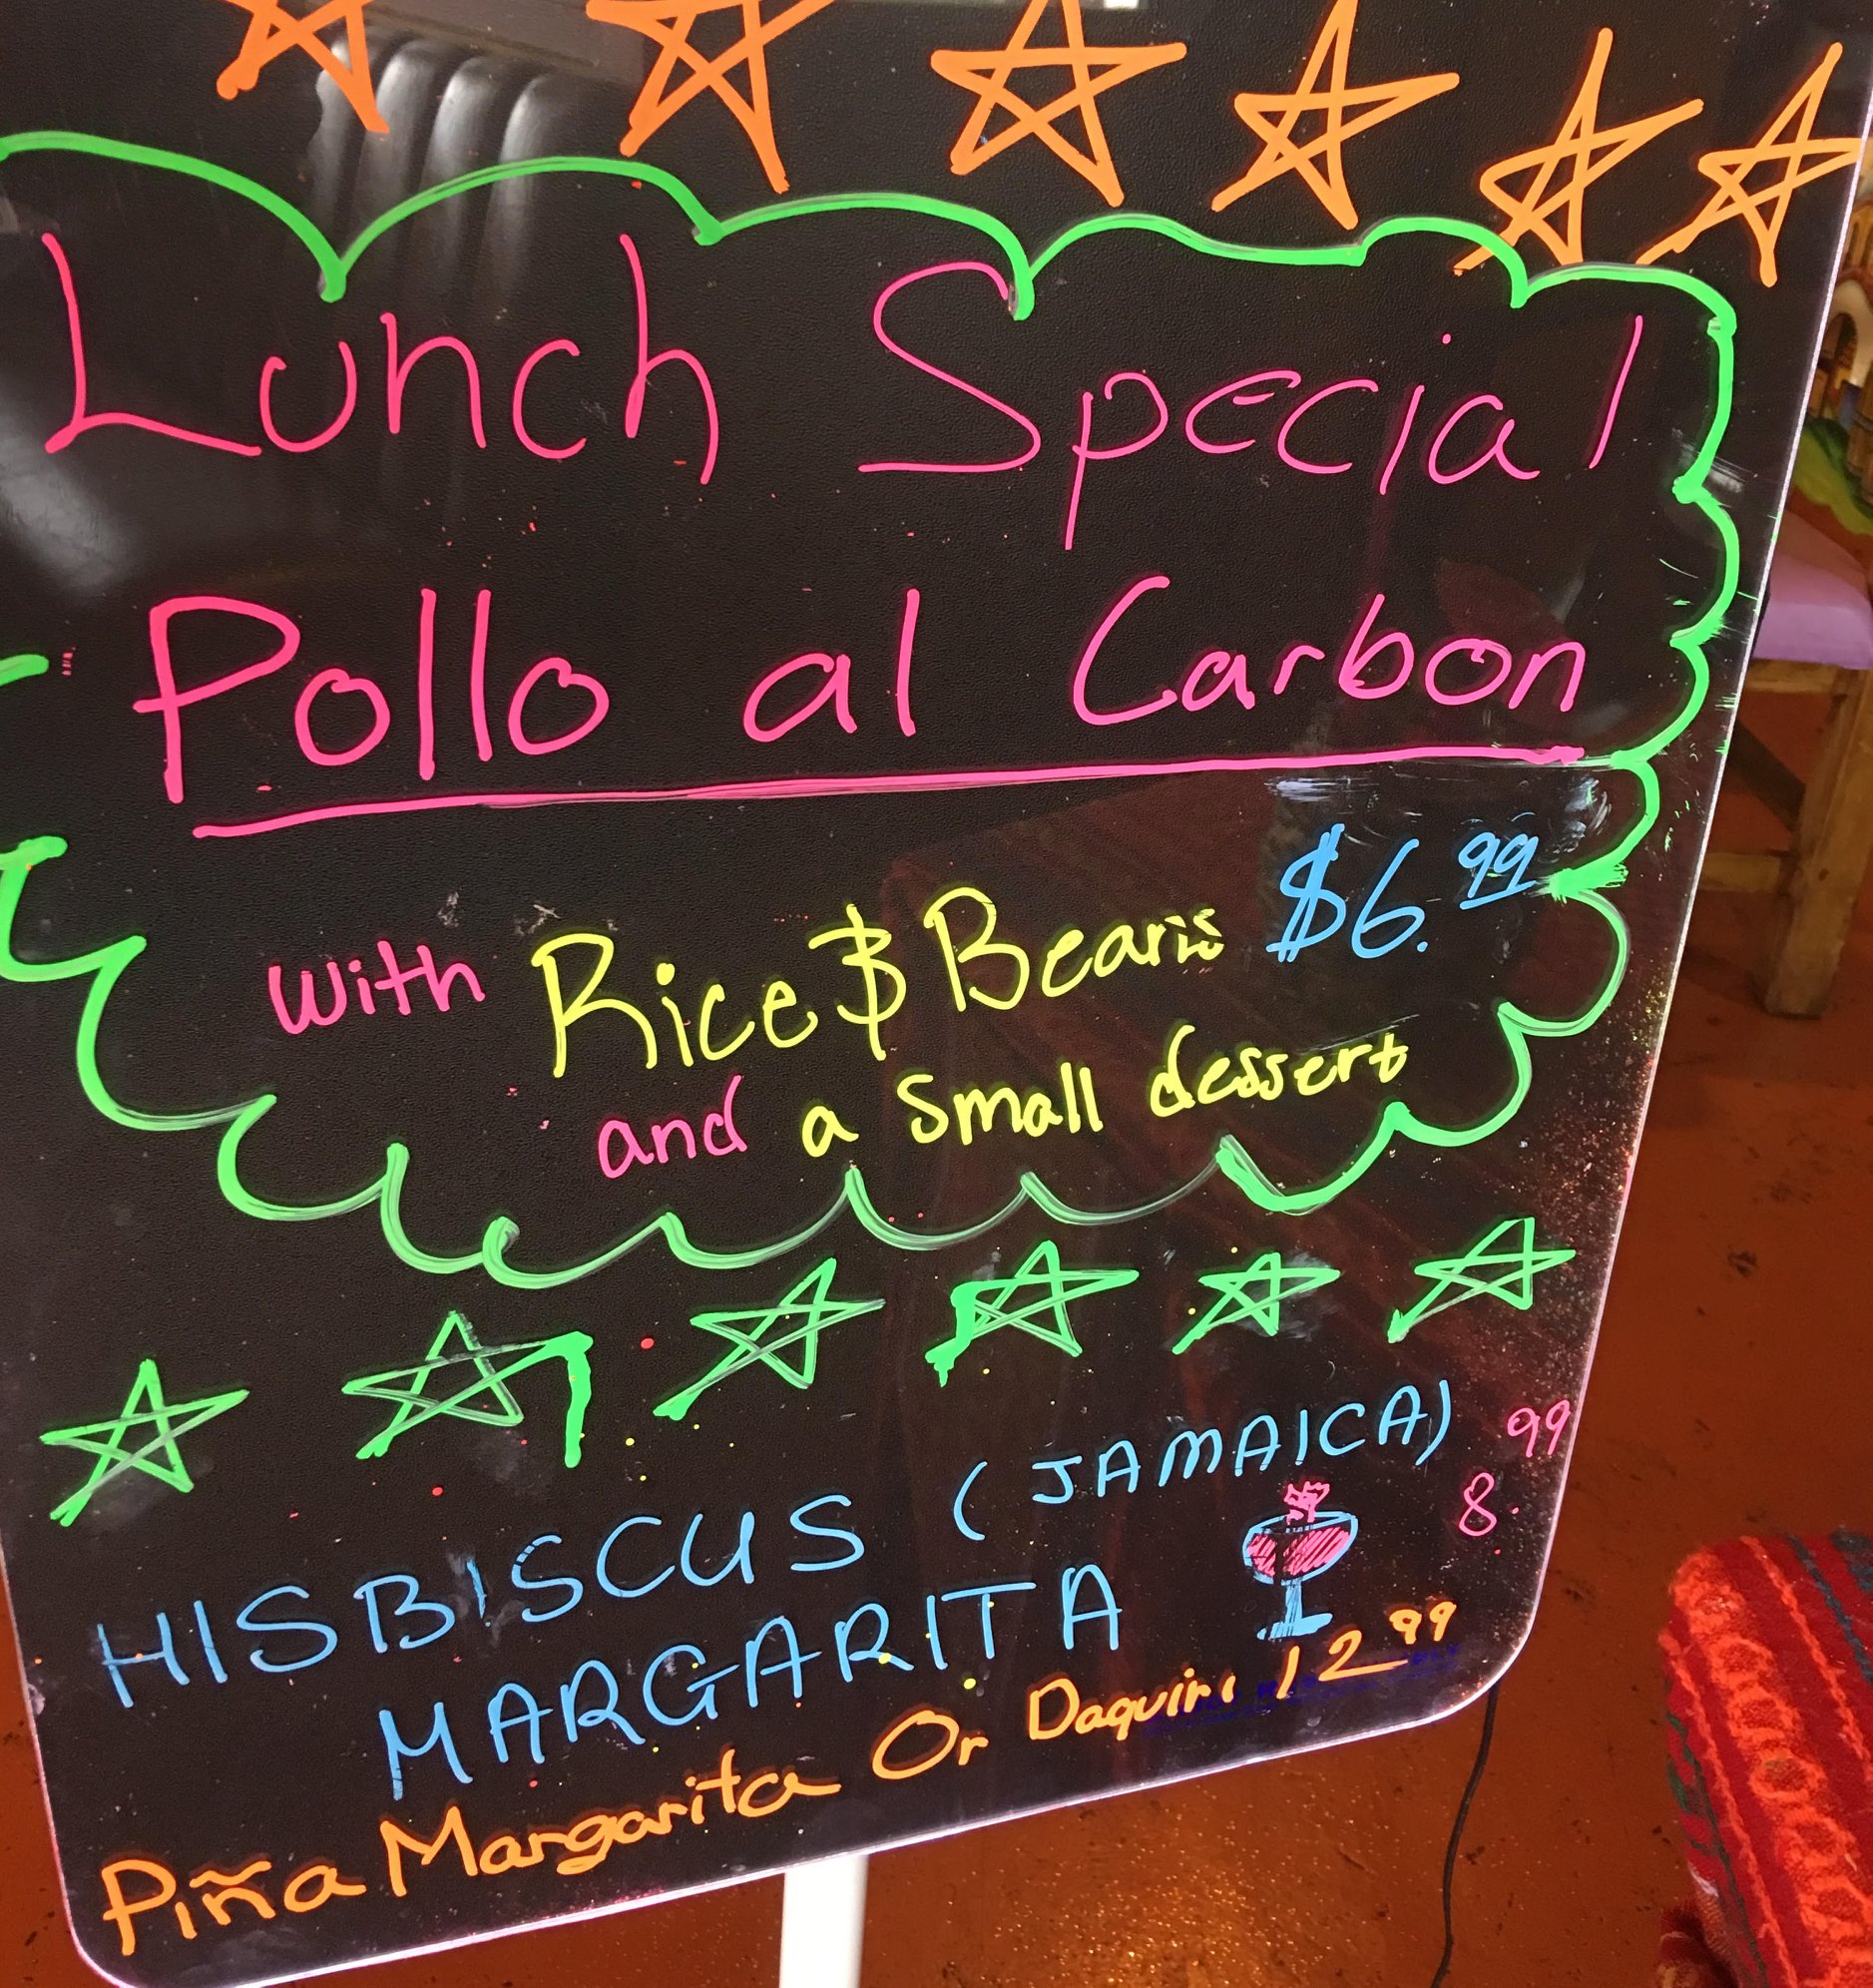 Lunch Special
Pollo al Carbon
with Rice & Beans $6.99
and a small dessert
HISBISCUS (JAMAICA) 8.99
MARGARITA
Piña Margarita Or Daquiri 12 99